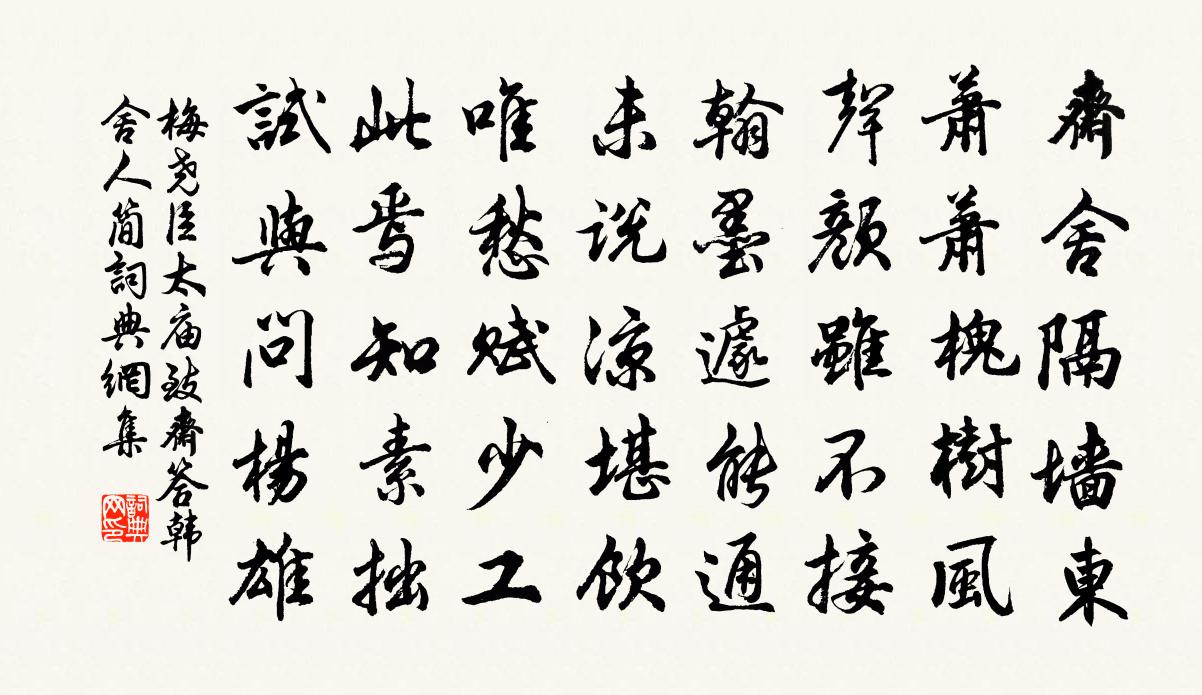 齋舍隔墻東
蕭蕭槐樹風
聲顏雖不接
翰墨遽能通
未說涼堪飲
唯愁賦少工
此焉知素拙
試與問楊雄
梅堯臣太庙致齋答韩
舍人簡詞典網集
詞典
网印